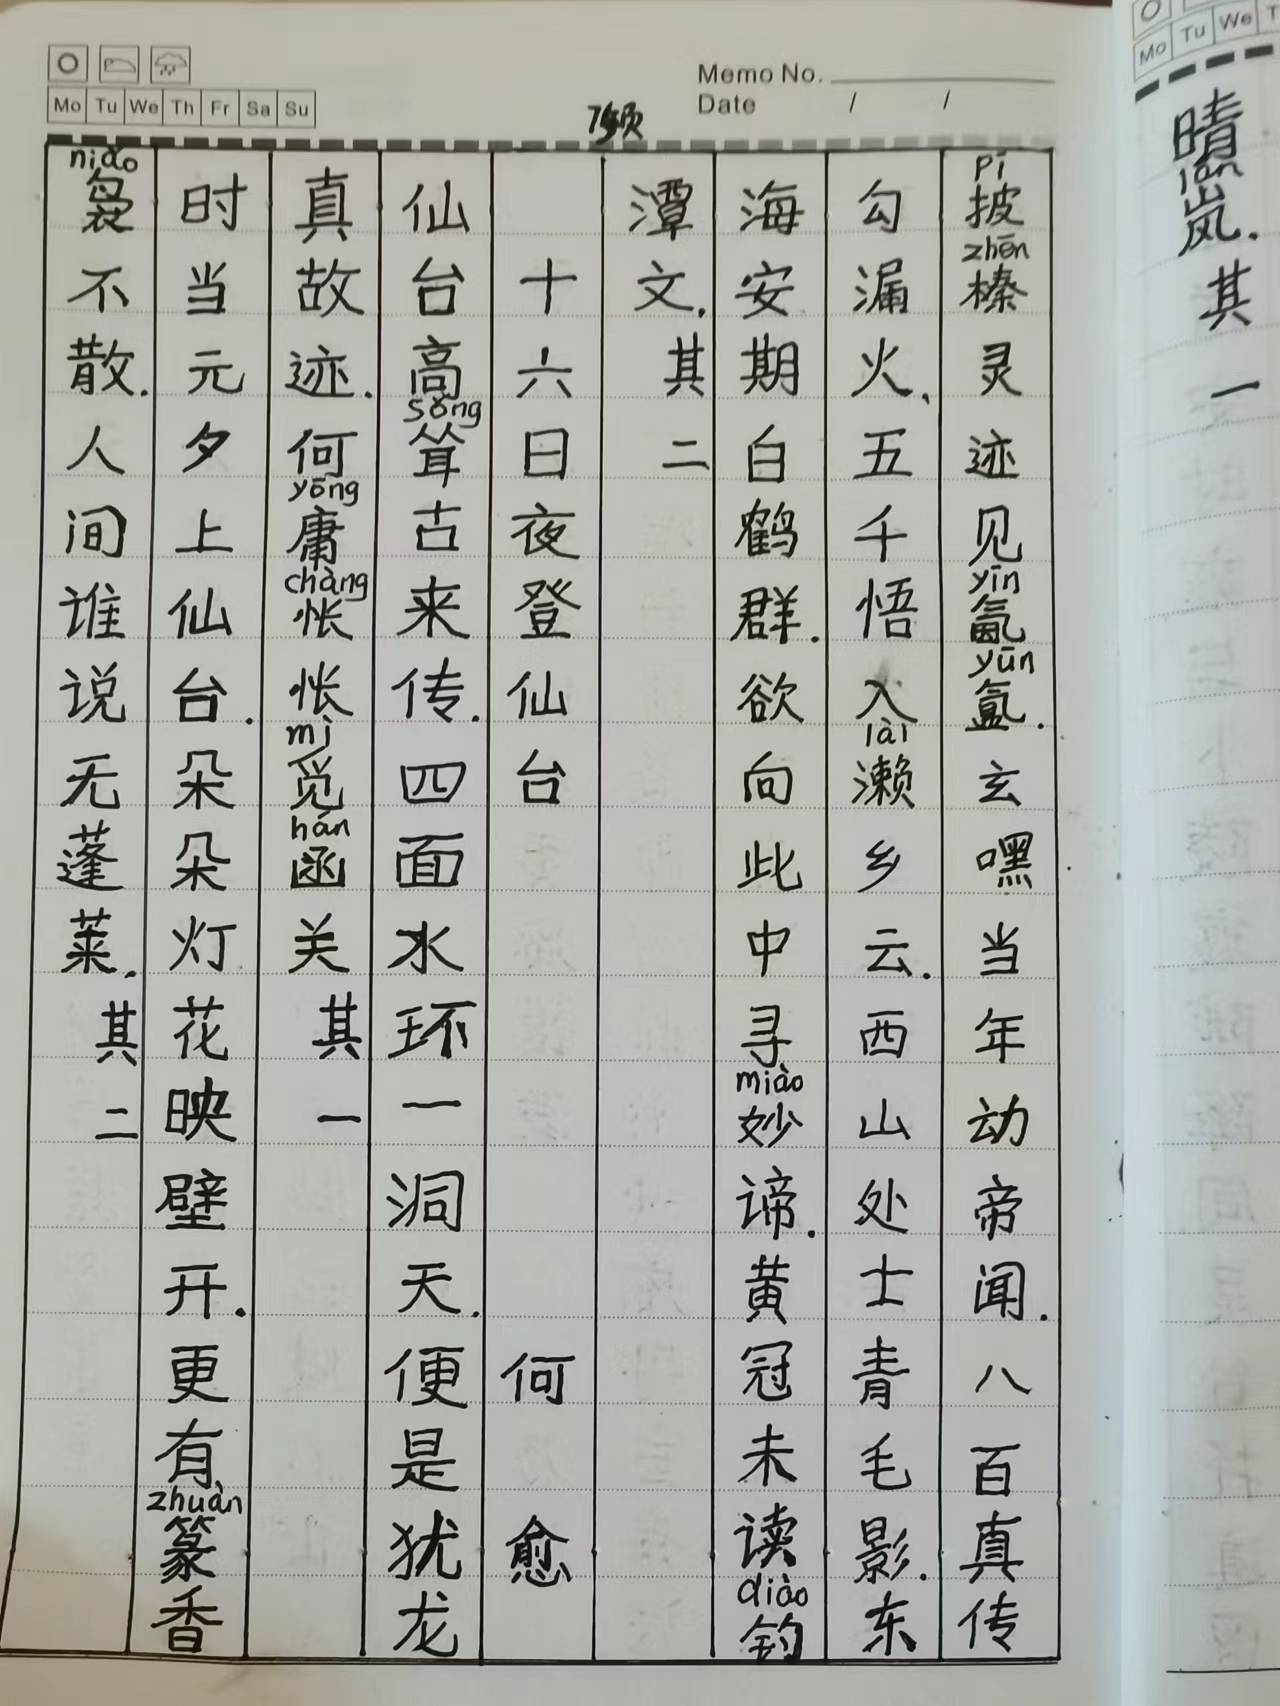 Memo No.
Mo Tu We Th Fr Sa Su
Date / /
Mo Tu We T
晴岚.其一
lán
披榛灵迹见氤氲.玄嘿当年动帝闻.八百真传
pī zhēn yīn yūn
勾漏火、五千悟入濑乡云.西山处士青毛影.东
lài
海安期白鹤群.欲向此中寻妙谛.黄冠未读钓
miào diào
潭文.其二
十六日夜登仙台 何愈
仙台高耸古来传.四面水环一洞天.便是犹龙
sǒng
真故迹.何庸怅怅觅函关 其一
yōng chàng mì hán
时当元夕上仙台.朵朵灯花映壁开.更有篆香
zhuàn
袅不散.人间谁说无蓬莱.其二
niǎo